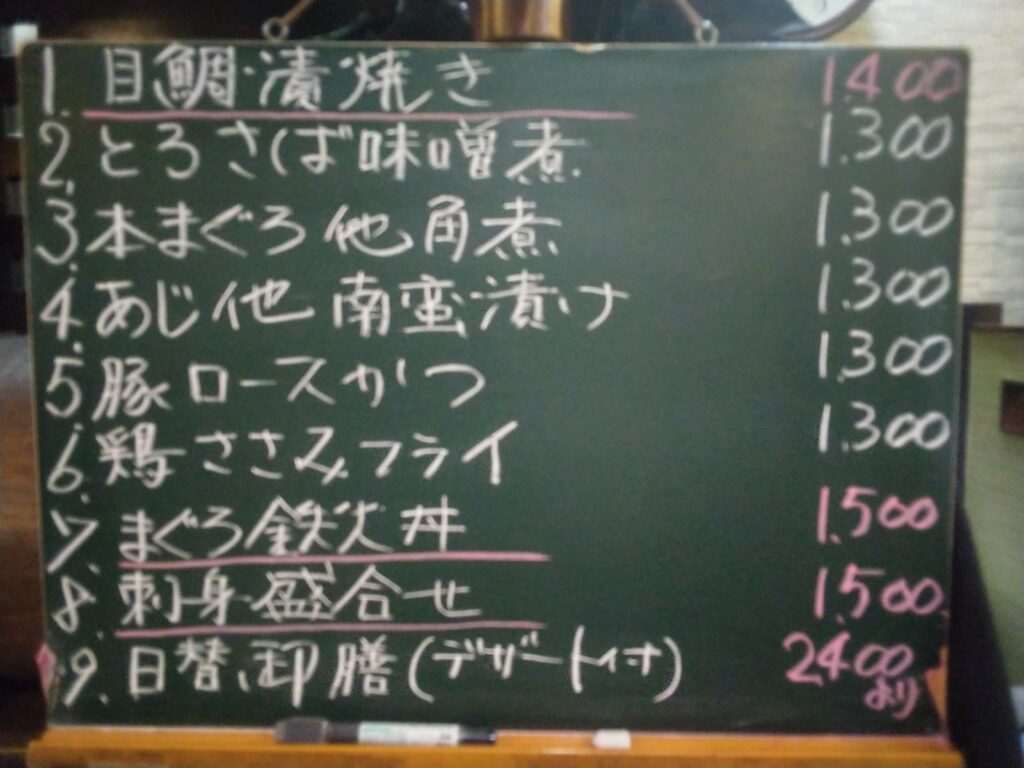 1. 目鯛漬焼き 1.400
2. とろさば味噌煮 1.300
3. 本まぐろ他角煮 1.300
4. あじ他 南蛮漬け 1.300
5. 豚ロースかつ 1.300
6. 鶏ささみフライ 1.300
7. まぐろ鉄火丼 1.500
8. 刺身盛合せ 1.500
9. 日替御膳(デザート付) 2.400
より